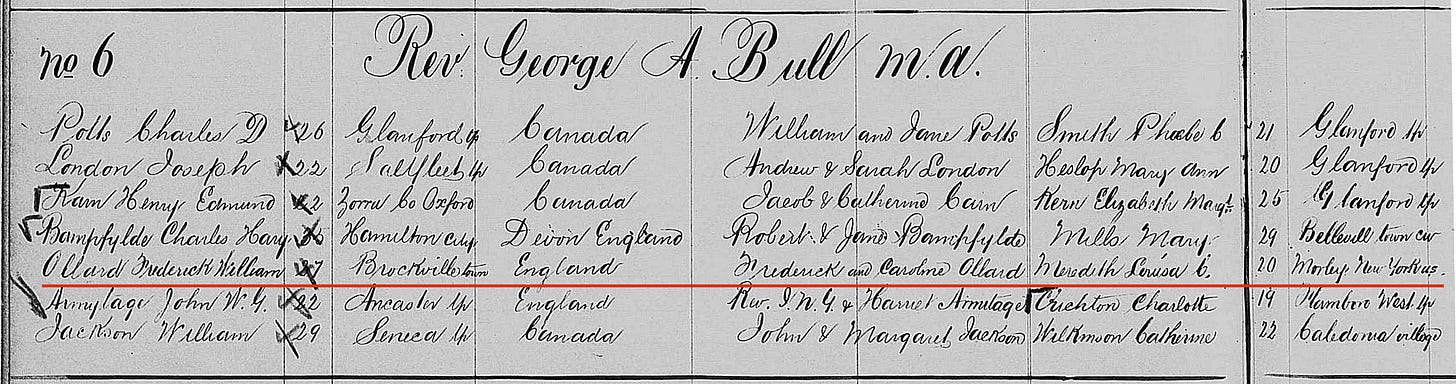 no 6 Rev. George A. Bull m.a.
Potts Charles D 26 Glanford tp Canada William and Jane Potts Smith Phoebe C 21 Glanford tp
London Joseph 22 Saltfleet tp Canada Andrew & Sarah London Heslop Mary Ann 20 Glanford tp
Karn Henry Edmund Zorra Co Oxford Canada Jacob & Catherine Carn Kern Elizabeth Margt. 25 Glanford tp
Bampfylde Charles Hary Hamilton city Devon England Robert & Jane Bampfylde Mills Mary 29 Bellevill town cw
Ollard Frederick William Brockville town England Frederick and Caroline Ollard Meredith Louisa C. 20 Morley New York us.
Armytage John W. G. 22 Ancaster tp England Rev. I. N. G & Harriet Armitage Crichton Charlotte 19 Flamboro West tp
Jackson William 29 Seneca tp Canada John & Margaret Jackson Wilkinson Catherine 22 Caledonia village